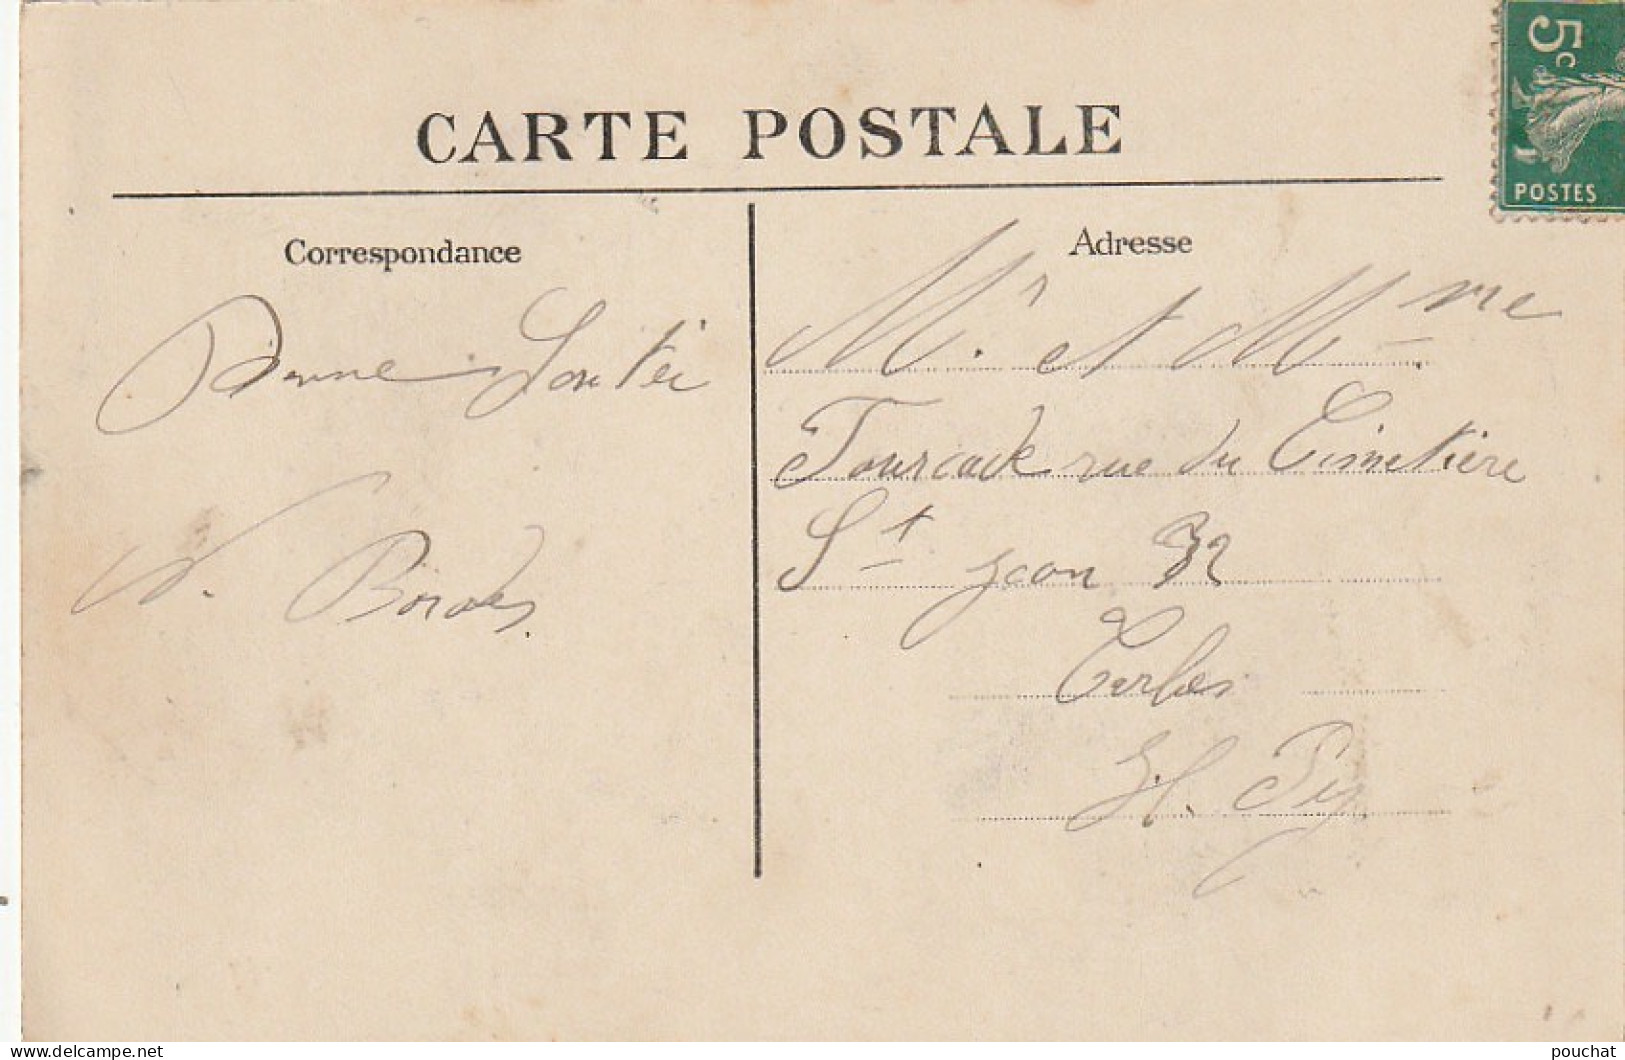 CARTE POSTALE
5c
POSTES
Correspondance
Bonne Santé
V. Bordes.
Adresse
Mr. et Mme
Fourcade rue du Cimetière
St Jean 32
Tarbes
H. Py
delcampe.net
pouchat